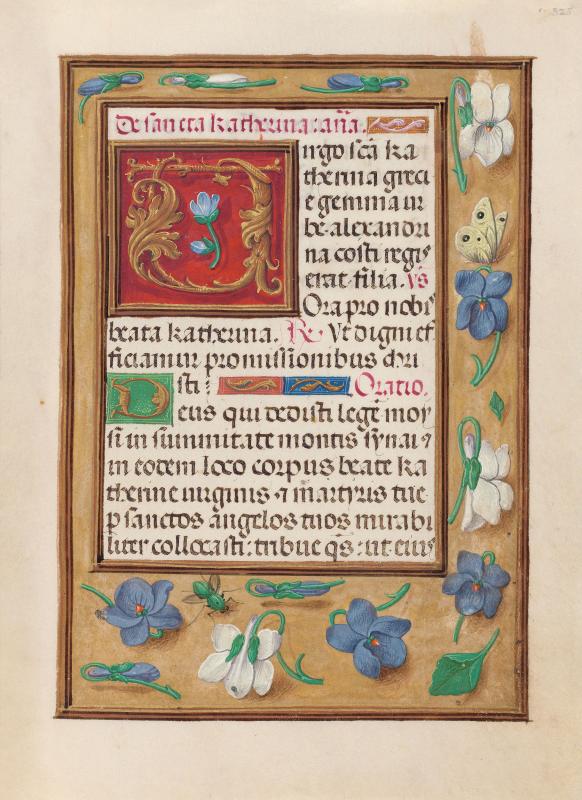 325
De sancta katherina: añа.
Virgo scã ka
therina greci
e gemma ur
be alexandri
na costi regis
erat filia. vs
Ora pro nobis
beata katherina. Re. Vt digni ef
ficiamur promissionibus chri
sti: Oratio.
Deus qui dedisti legẽ moy
si in summitate montis synai ⁊
in eodem loco corpus beate ka
therine uirginis ⁊ martyris tue
p sanctos ãngelos tuos mirabi
liter collocasti: tribue q̃s: ut eius